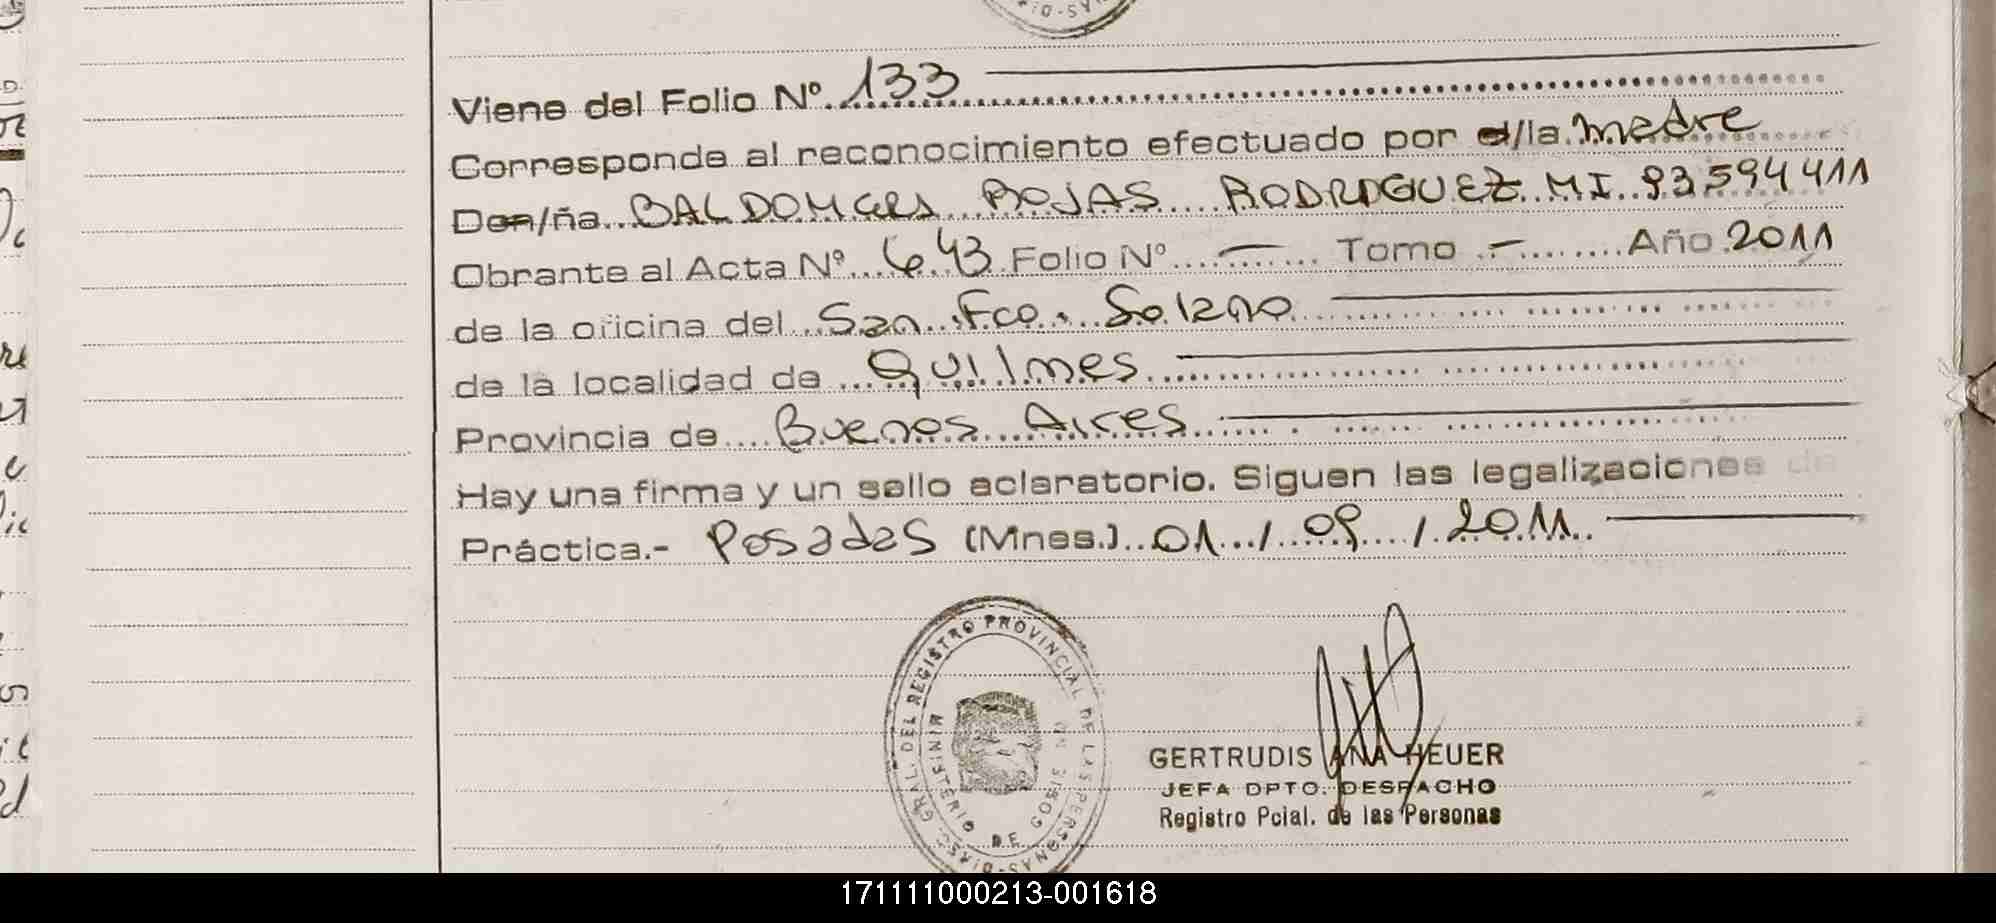 Viene del Folio Nº 133
Corresponde al reconocimiento efectuado por el/la madre
Don/ña BALDOMERA ROJAS RODRIGUEZ MI 93594411
Obrante al Acta Nº 643 Folio Nº — Tomo — Año 2011
de la oficina del San Fco. Solano
de la localidad de Quilmes
Provincia de Buenos Aires
Hay una firma y un sello aclaratorio. Siguen las legalizaciones de
Práctica.- Posadas (Mnes.) 01 / 09 / 2011
GRAL. DEL REGISTRO PROVINCIAL DE LAS PERSONAS
MINISTERIO DE GOBI
GERTRUDIS ANA HEUER
JEFA DPTO. DESPACHO
Registro Pcial. de las Personas
171111000213-001618